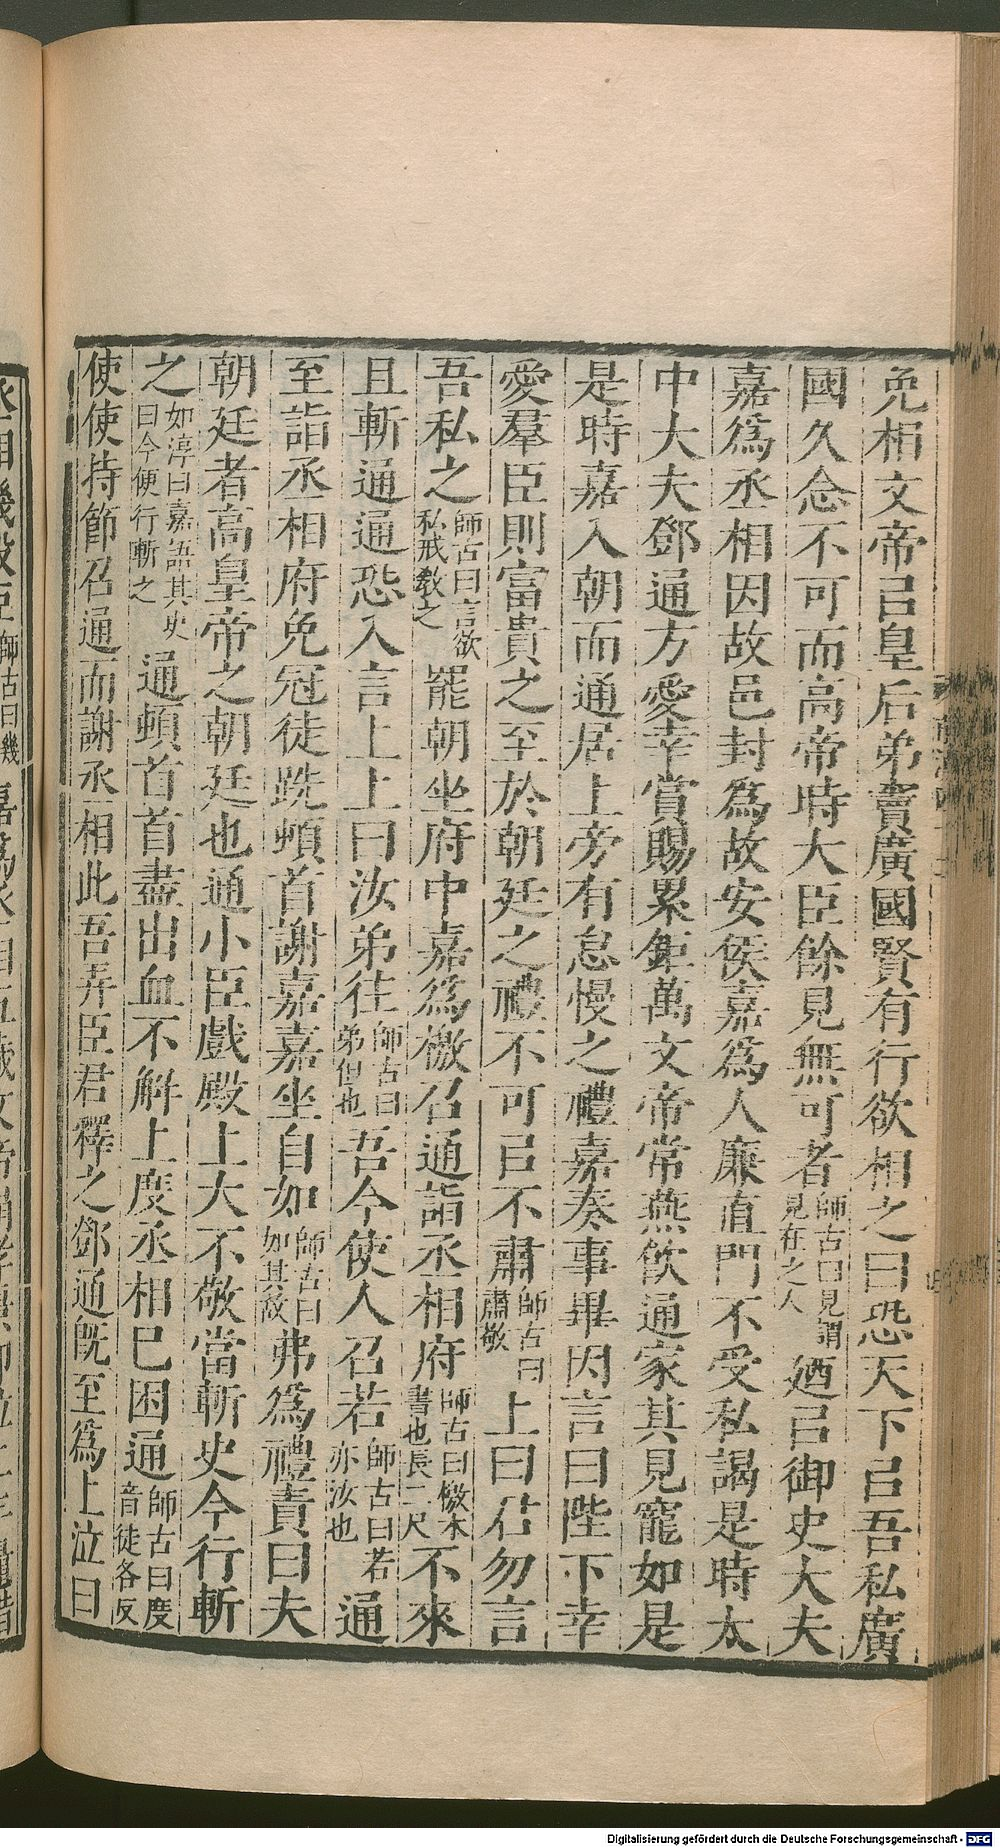 免相文帝㠯皇后弟竇廣國賢有行欲相之曰恐天下㠯吾私廣
國久念不可而高帝時大臣餘見無可者師古曰見謂見在之人廼㠯御史大夫
嘉爲丞相因故邑封爲故安侯嘉爲人廉直門不受私謁是時太
中大夫鄧通方愛幸賞賜累鉅萬文帝常燕飲通家其見寵如是
是時嘉入朝而通居上旁有怠慢之禮嘉奏事畢因言曰陛下幸
愛羣臣則富貴之至於朝廷之禮不可㠯不肅師古曰肅敬上曰君勿言
吾私之師古曰言欲私戒教之罷朝坐府中嘉爲檄召通詣丞相府師古曰檄木書也長二尺不來
且斬通通恐入言上上曰汝弟往師古曰弟但也吾今使人召若師古曰若亦汝也通
至詣丞相府免冠徒跣頓首謝嘉嘉坐自如師古曰如其故弗爲禮責曰夫
朝廷者高皇帝之朝廷也通小臣戲殿上大不敬當斬史今行斬
之如淳曰嘉語其史曰今便行斬之通頓首首盡出血不解上度丞相已困通師古曰度音徒各反
使使持節召通而謝丞相此吾弄臣君釋之鄧通旣至爲上泣曰
丞相幾殺臣師古曰幾嘉爲丞相五歲文帝
Digitalisierung gefördert durch die Deutsche Forschungsgemeinschaft - DFG